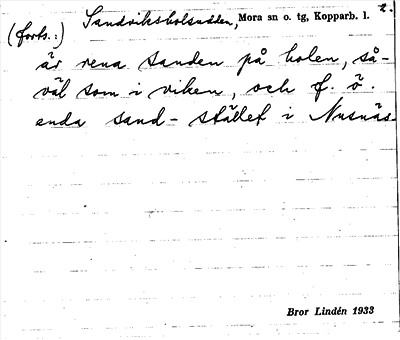 2.
(forts.:) Sandviksholsudden, Mora sn o. tg, Kopparb. l.
är rena sanden på holen, så-
väl som i viken, och f. ö.
enda sand-stället i Nusnäs.
Bror Lindén 1933